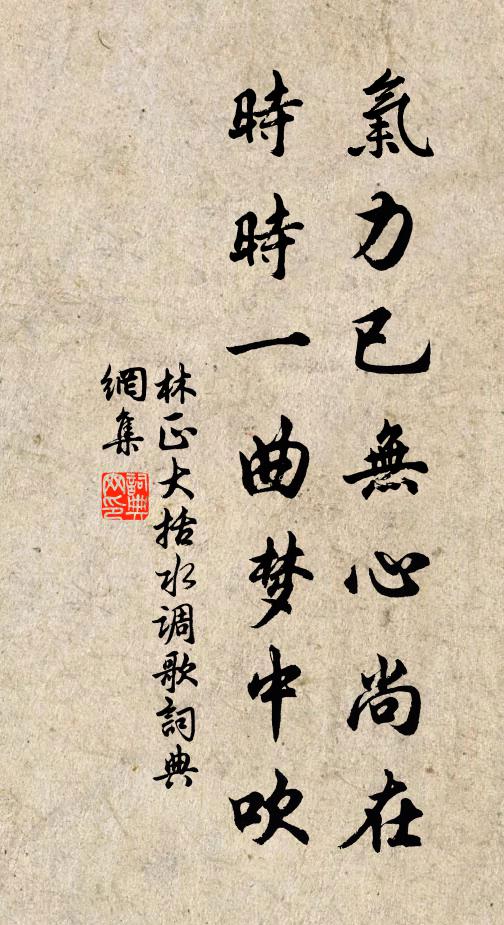 氣力已無心尚在
時時一曲梦中吹
林正大括水调歌詞典
網集
詞典
网印